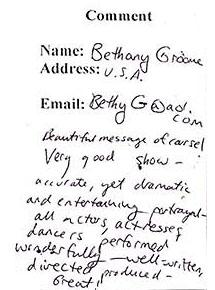 Comment
Name: Bethany Groome
Address: U.S.A.
Email: Bethy G@aol.
com
Beautiful message of
Very good show -
accurate, yet dramatic
and entertaining portrayal -
all actors, actresses,
dancers performed
wonderfully - well-written,
directed, produced -
Great!